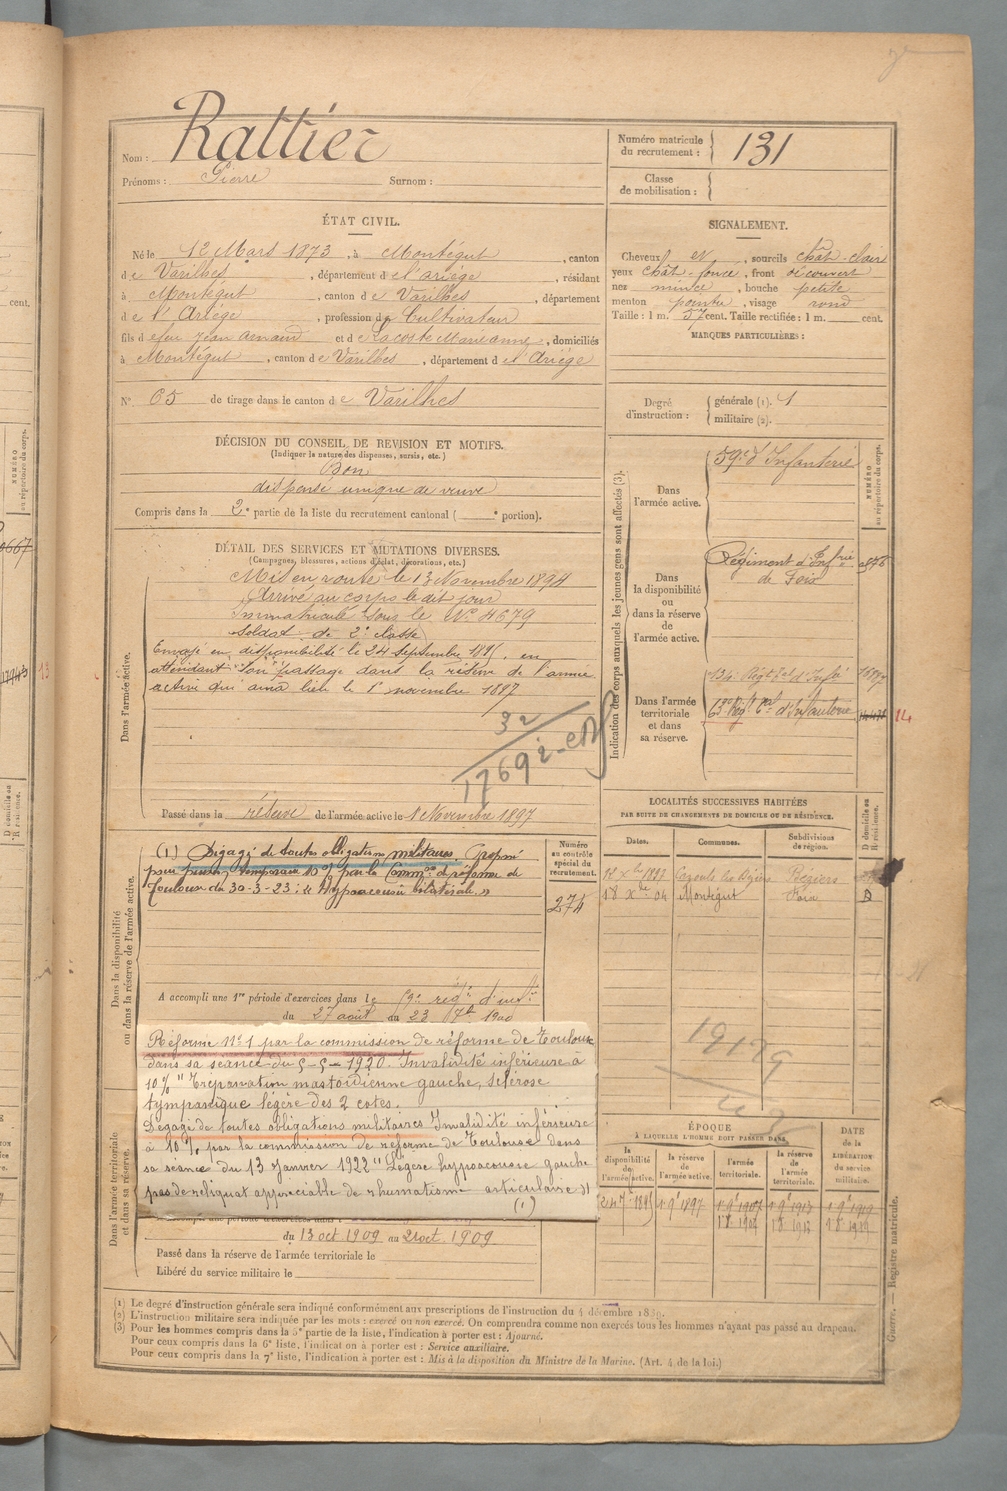 Nom : Rattier
Prénoms : Pierre Surnom :
Numéro matricule du recrutement : 131
Classe de mobilisation :
ÉTAT CIVIL.
Né le 12 Mars 1873, à Montégut, canton
de Varilhes, département de l'Ariége, résidant
à Montégut, canton de Varilhes, département
de l'Ariége, profession de Cultivateur
fils de feu Jean Arnaud et de Lacoste Marianne, domiciliés
à Montégut, canton de Varilhes, département de l'Ariége
N° 65 de tirage dans le canton de Varilhes
SIGNALEMENT.
Cheveux et, sourcils chât-clair
yeux chât-fonce, front découvert
nez mince, bouche petite
menton pointu, visage rond
Taille : 1 m. 57 cent. Taille rectifiée : 1 m. cent.
MARQUES PARTICULIÈRES :
Degré d'instruction : générale (1). 1
militaire (2).
DÉCISION DU CONSEIL DE REVISION ET MOTIFS.
(Indiquer la nature des dispenses, sursis, etc.)
Bon
dispensé unique de veuve
Compris dans la 2e partie de la liste du recrutement cantonal ( e portion).
DÉTAIL DES SERVICES ET MUTATIONS DIVERSES.
(Campagnes, blessures, actions d'éclat, décorations, etc.)
Dans l'armée active.
Mis en route le 13 Novembre 1894
Arrivé au corps le dit jour
Immatriculé sous le N° 4679
Soldat de 2e classe
Envoyé en disponibilité le 24 septembre 1895, en
attendant son passage dans la réserve de l'armée
active qui aura lieu le 1er novembre 1897
32
1769
Passé dans la réserve de l'armée active le 1 Novembre 1897
Indication des corps auxquels les jeunes gens sont affectés (3).
NUMÉRO au répertoire du corps.
Dans l'armée active.
59e d'Infanterie
Dans la disponibilité ou dans la réserve de l'armée active.
Régiment d'Infrie
de Foix
Dans l'armée territoriale et dans sa réserve.
134e Régt Tal d'Infe
63e Régt Tal d'Infanterie
14
LOCALITÉS SUCCESSIVES HABITÉES
PAR SUITE DE CHANGEMENTS DE DOMICILE OU DE RÉSIDENCE.
Dates. Communes. Subdivisions de région. D domicile ou R résidence.
Béziers
18 Xbre 04 Montégut Foix D
Dans la disponibilité ou dans la réserve de l'armée active.
Numéro au contrôle spécial du recrutement.
274
(1) Dégagé de toutes obligations militaires. Proposé
pour pension temporaire 10 % par la Common de réforme de
Toulouse du 30-3-23 : "Hypoacousie bilatérale."
A accompli une 1re période d'exercices dans le 59e régt d'infie
du 27 août au 23 7bre 1900
Réforme N° 1 par la commission de réforme de Toulouse
dans sa séance du 5-5-1920. Invalidité inférieure à
10 % "Trépanation mastoïdienne gauche, sclérose
tympanique légère des 2 cotes.
Dégagé de toutes obligations militaires Invalidité inférieure
à 10 % par la commission de réforme de Toulouse dans
sa séance du 13 Janvier 1922 "Légère hypoacousie gauche
pas de reliquat appréciable de rhumatisme articulaire"
(1)
Dans l'armée territoriale et dans sa réserve.
du 13 oct 1909 au 21 oct 1909
Passé dans la réserve de l'armée territoriale le
Libéré du service militaire le
19179
ÉPOQUE
À LAQUELLE L'HOMME DOIT PASSER DANS
la disponibilité de l'armée active.
la réserve de l'armée active.
l'armée territoriale.
la réserve de l'armée territoriale.
DATE de la LIBÉRATION du service militaire.
(1) Le degré d'instruction générale sera indiqué conformément aux prescriptions de l'instruction du 4 décembre 1889.
(2) L'instruction militaire sera indiquée par les mots : exercé ou non exercé. On comprendra comme non exercés tous les hommes n'ayant pas passé au drapeau.
(3) Pour les hommes compris dans la 5e partie de la liste, l'indication à porter est : Ajourné.
Pour ceux compris dans la 6e liste, l'indication à porter est : Service auxiliaire.
Pour ceux compris dans la 7e liste, l'indication à porter est : Mis à la disposition du Ministre de la Marine. (Art. 4 de la loi.)
Guerre. — Registre matricule.